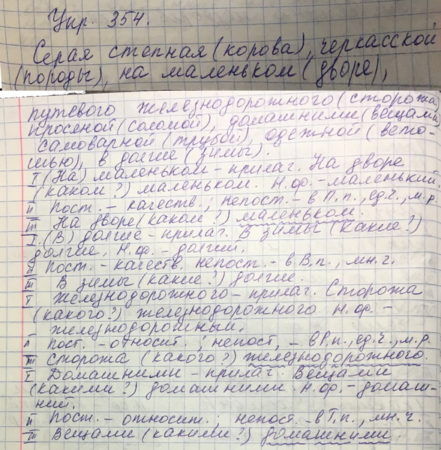 Упр. 354.
Серая степная (корова), черкасской
(породы), на маленьком (дворе),
путевого железнодорожного (сторожа,
просяной (соломой), домашними (вещами
самоварной (трубой), одежной (вето-
шью), в долгие (зимы).
I (На) маленьком - прилаг. На дворе
(каком?) маленьком. Н.ф. - маленький
II Пост. - качеств., непост. - в П.п., ед.ч., м.р.
III На дворе (каком?) маленьком.
I (В) долгие - прилаг. В зимы (какие?)
долгие. Н.ф. - долгий.
II Пост. - качеств, непост. - в В.п., мн.ч.
III В зимы (какие?) долгие.
I Железнодорожного - прилаг. Сторожа
(какого?) железнодорожного Н.ф. -
железнодорошный.
II пост. - относит., непост, - в Р.п., ед.ч., м.р.
III Сторожа (какого?) железнодорожного.
I Домашними - прилаг. Вещами
(какими?) домашними. Н.ф. - домаш-
ний.
II Пост. - относит., непост. - в Т.п., мн.ч.
III Вещами (какими?) домашними.